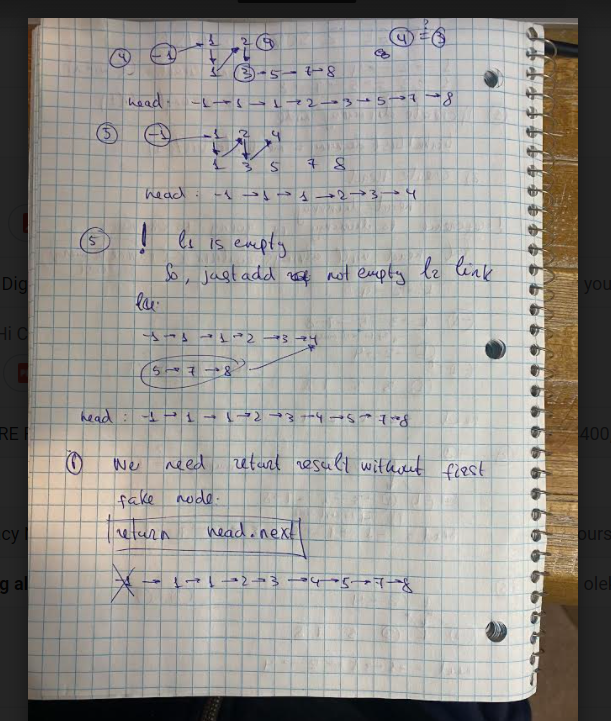 4 -1 → 1 2 4 4 = 3
1 3 → 5 → 7 → 8
head: -1 → 1 → 1 → 2 → 3 → 5 → 7 → 8
5 -1 → 1 2 4
1 3 5 7 8
head: -1 → 1 → 1 → 2 → 3 → 4
5 ! l1 is empty
So, just add not empty l2 link
-1 → 1 → 1 → 2 → 3 → 4
5 → 7 → 8
head: -1 → 1 → 1 → 2 → 3 → 4 → 5 → 7 → 8
We need return result without first
fake node.
return head.next
-1 → 1 → 1 → 2 → 3 → 4 → 5 → 7 → 8